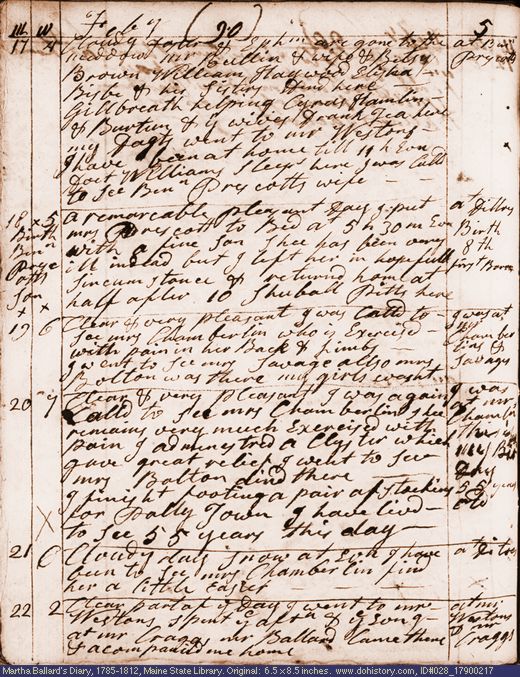 M W Feby (90) 5
17 4 Cloudy. Jona & Ephm are gone to the at Ben
meadow Mr Bullin & wife & Betsy Prescotts
Brown William Haywood Elisha
Bisbe & his Sisters Dind here
Gillbreath helping Cyrus Hamlin
& Burtun & y wives Drank Tea here
my Dagts went to mr Westons
I have been at home till 11 h Evn
Doct Williams Sleeps here I was Calld
to See Benn Prescotts wife
18 x 5 a remarcable pleasant Day I put at Ditoes
Birth mrs Prescott to Bed at 5 h 30 m Evn Birth
Benn with a fine Son Shee has been very 8th
Presc ill indead but I left her in hopefull first Born
otts Sircumstance & returned home at
Son half after 10 Shuball Pitts here
x x
19 6 Clear & very pleasant I was Calld to I was at
See mrs Chamberlin who is Exercisd mr
with pain in her Back & Limbs Chamber
I went to See mrs Savage also mrs lins &
Bolton was there my girls washt Savages
20 7 Clear & very pleasant I was again I was
Calld to See mrs Chamberlin shee at mr
remains very much Exercised with Chamblin
pain I administred a Clyster which this is
gave great relief I went to See my Birth
mrs Bolton dind there Day
I finisht footing a pair of Stockins 55 years
for Dally Town I have lived old
X to See 55 years this day
21 C Cloudy day snow at Evn I have at Ditoes
been to See mrs Chamberlin find
her a little Easier
22 2 Clear part of y Day I went to mr at mr
Westons Spent y aftn & y Evng Westons
at mr Craggs mr Ballard Came there & mr
& acompanied me home Craggs
Martha Ballard's Diary, 1785-1812, Maine State Library. Original: 6.5 x 8.5 inches. www.dohistory.com, ID#028_17900217